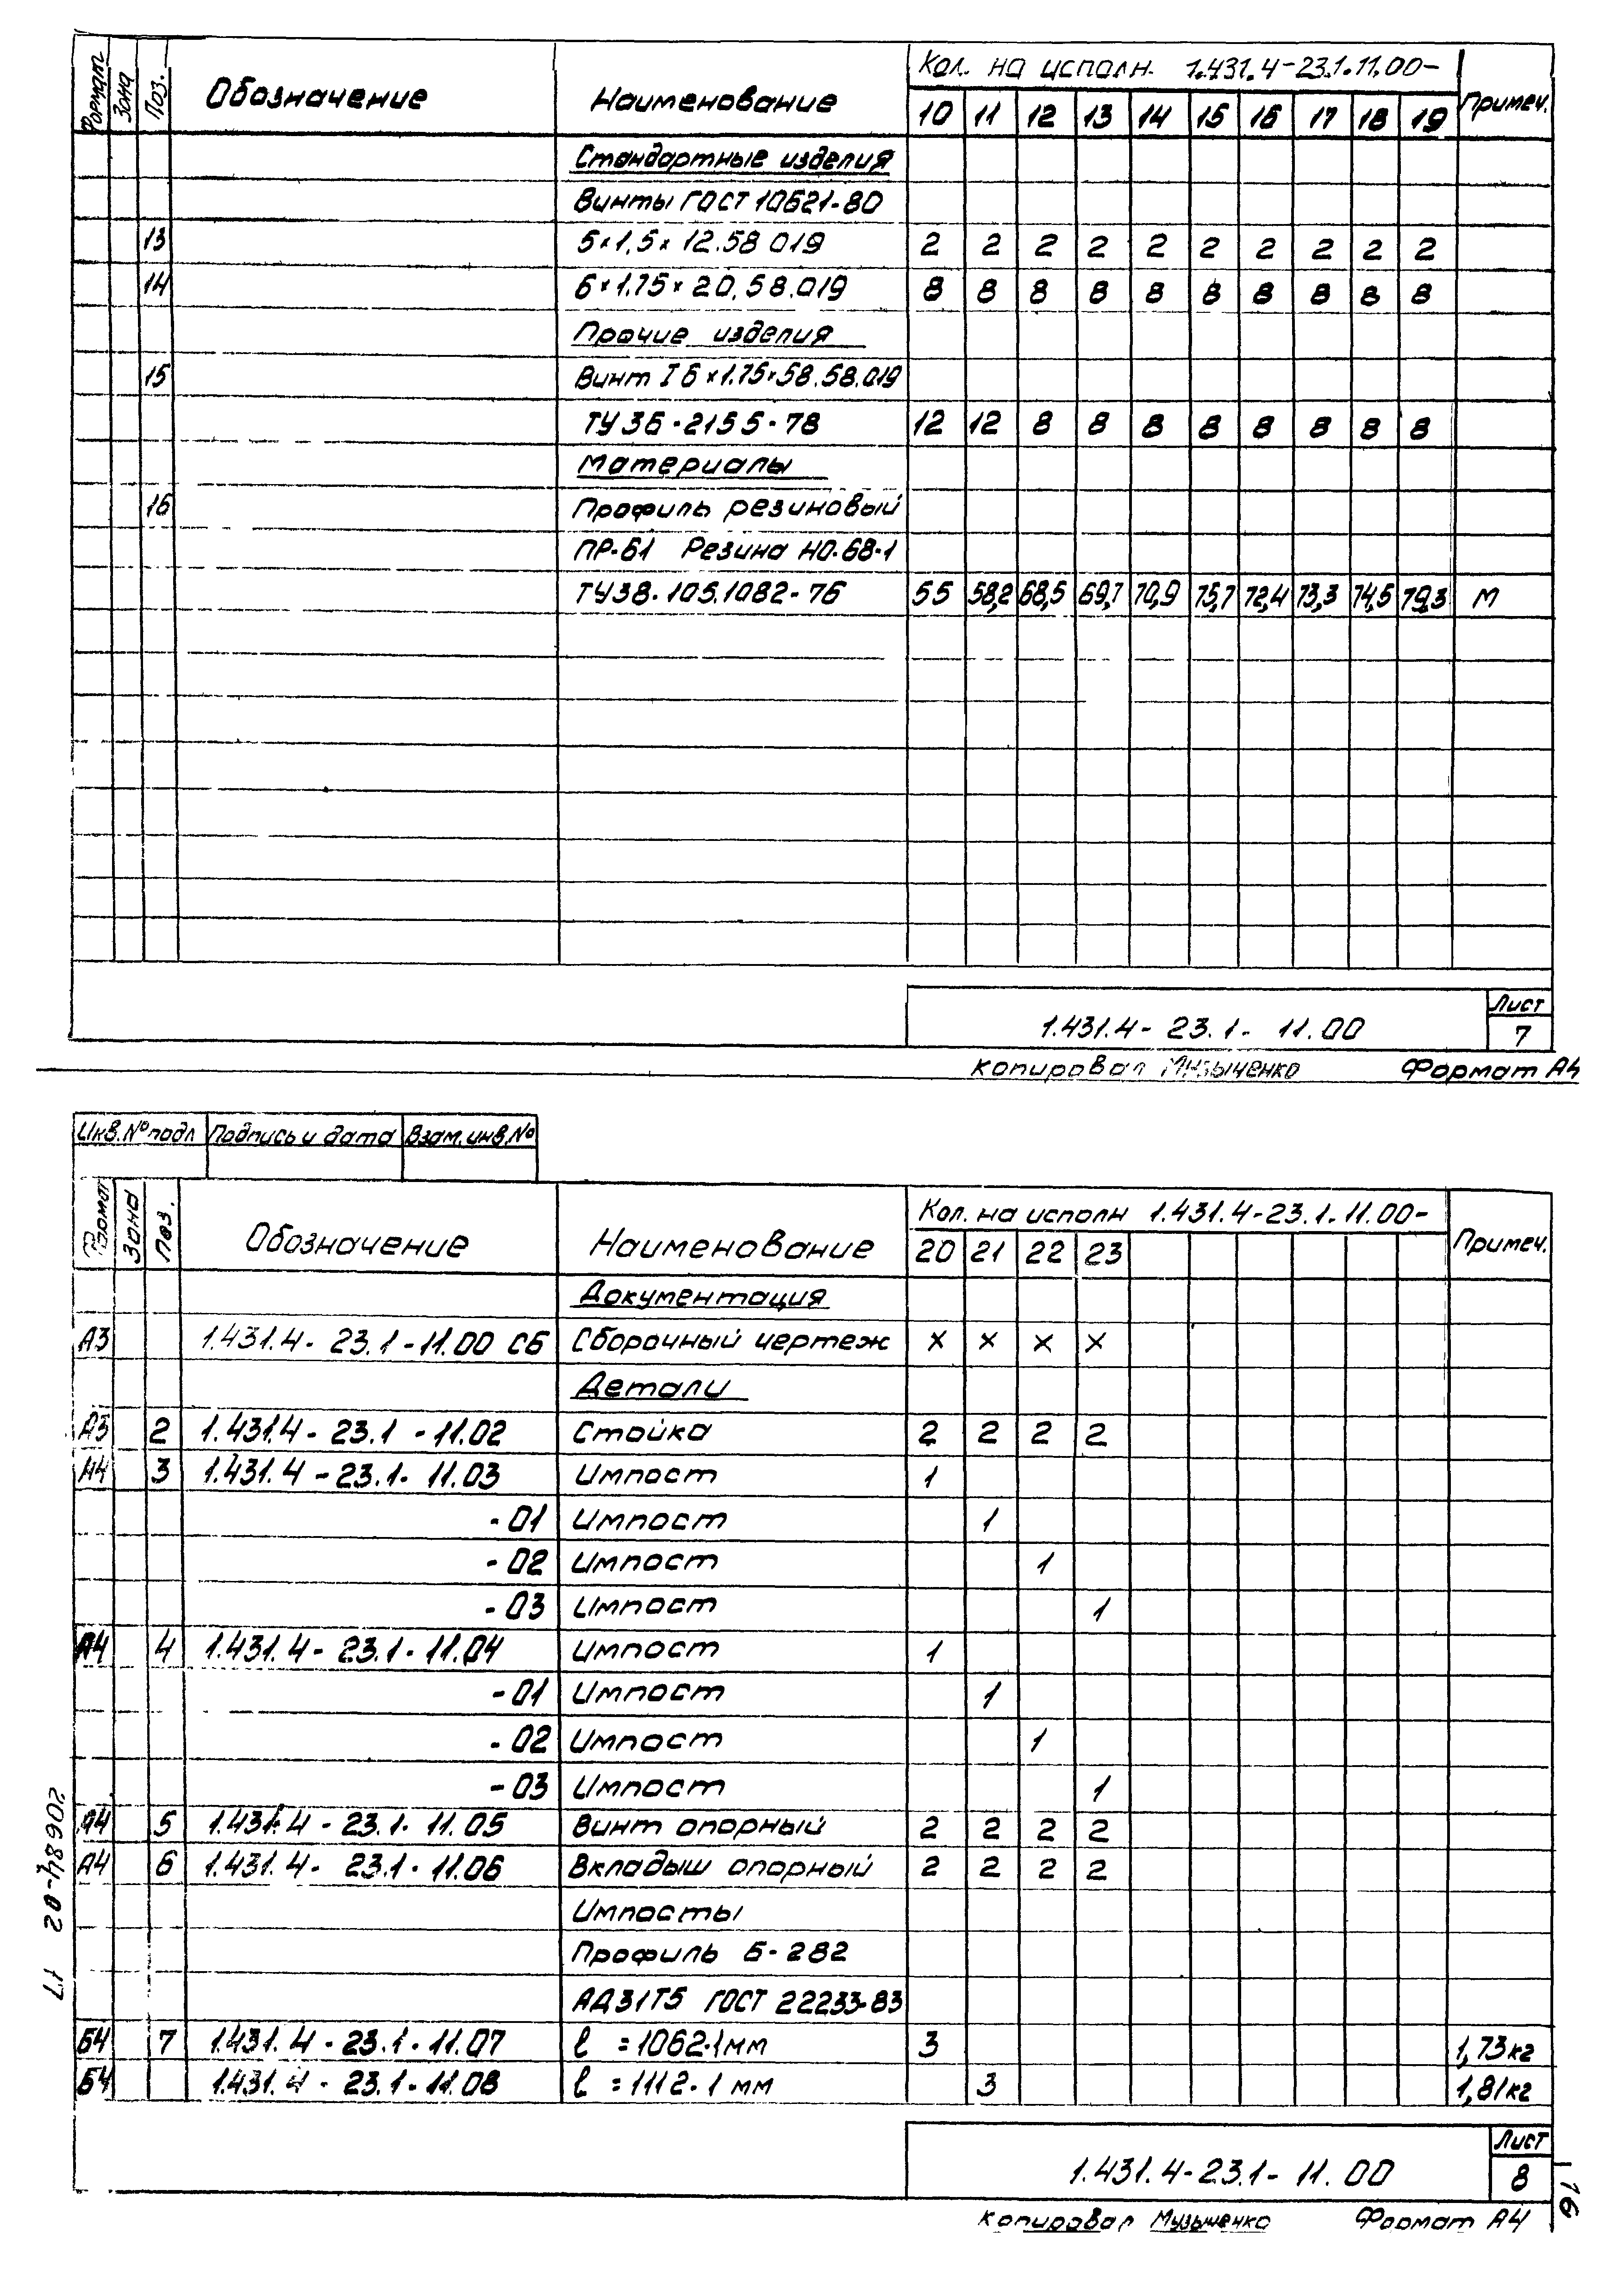 Формат Зона Поз. Обозначение Наименование Кол. на исполн. 1.431.4-23.1.11.00- Примеч.
10 11 12 13 14 15 16 17 18 19
Стандартные изделия
Винты ГОСТ 10621-80
13 5×1,5×12.58 019 2 2 2 2 2 2 2 2 2 2
14 6×1.75×20.58.019 8 8 8 8 8 8 8 8 8 8
Прочие изделия
15 Винт I 6×1.75×58.58.019
ТУ 36-2155-78 12 12 8 8 8 8 8 8 8 8
Материалы
16 Профиль резиновый
ПР-61 Резина НО-68-1
ТУ38.105.1082-76 55 58,2 68,5 69,7 70,9 75,7 72,4 73,3 74,5 79,3 м
1.431.4- 23.1- 11.00 Лист
7
Копировал Музыченко Формат А4
Инв.№подл Подпись и дата Взам.инв.№
Формат Зона Поз. Обозначение Наименование Кол. на исполн 1.431.4-23.1.11.00- Примеч.
20 21 22 23
Документация
А3 1.431.4- 23.1-11.00 СБ Сборочный чертеж × × × ×
Детали
А3 2 1.431.4- 23.1 -11.02 Стойка 2 2 2 2
А4 3 1.431.4-23.1- 11.03 Импост 1
-01 Импост 1
-02 Импост 1
-03 Импост 1
А4 4 1.431.4- 23.1- 11.04 Импост 1
-01 Импост 1
-02 Импост 1
-03 Импост 1
А4 5 1.431.4 - 23.1- 11.05 Винт опорный 2 2 2 2
А4 6 1.431.4- 23.1- 11.06 Вкладыш опорный 2 2 2 2
Импосты
Профиль Б-282
АД31Т5 ГОСТ 22233-83
Б4 7 1.431.4-23.1-11.07 ℓ =1062-1мм 3 1,73кг
Б4 1.431.4-23.1-11.08 ℓ =1112-1 мм 3 1,81кг
1.431.4-23.1- 11.00 Лист
8
Копировал Музыченко Формат А4
20684-02 17
16